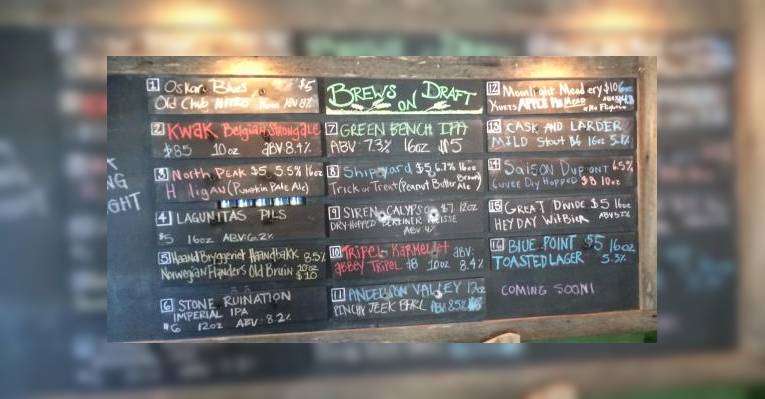 1 Oskar Blues $5
Old Chub Nitro 16oz ABV 8%
2 KWAK Belgian Strong Ale
$8.5 10oz ABV 8.4%
3 North Peak $5 5.5% 16oz
(Pumpkin Pale Ale)
4 LAGUNITAS PILS
$5 16oz ABV 6.2%
5 Haand Bryggeriet Haandbakk 8.5%
Norwegian Flanders Old Bruin 10oz $10
6 STONE RUINATION
IMPERIAL IPA
$6 12oz ABV 8.2%
BREWS ON DRAFT
7 GREEN BENCH IPA
ABV 7.3% 16oz $5
8 Shipyard $5 6.7% 16oz
Trick or Treat (Peanut Butter Brown Ale)
9 SIREN CALYPSO $7 12oz
DRY-HOPPED BERLINER WEISSE
ABV 4%
10 TRIPEL KARMELIET ABV:
ABBEY TRIPEL $8 10oz 8.4%
11 ANDERSON VALLEY 12oz
ABV 8.5% $6
12 Moonlight Meadery $10
KURT'S APPLE PIE MEAD
No Flights
13 CASK AND LARDER
MILD Stout $6 16oz
14 SAISON DUPONT 6.5%
Cuvee Dry Hopped $8 10oz
15 GREAT DIVIDE $5 16oz
HEYDAY WitBier
16 BLUE POINT $5 16oz
TOASTED LAGER 5.5%
COMING SOON!
NG
GHT